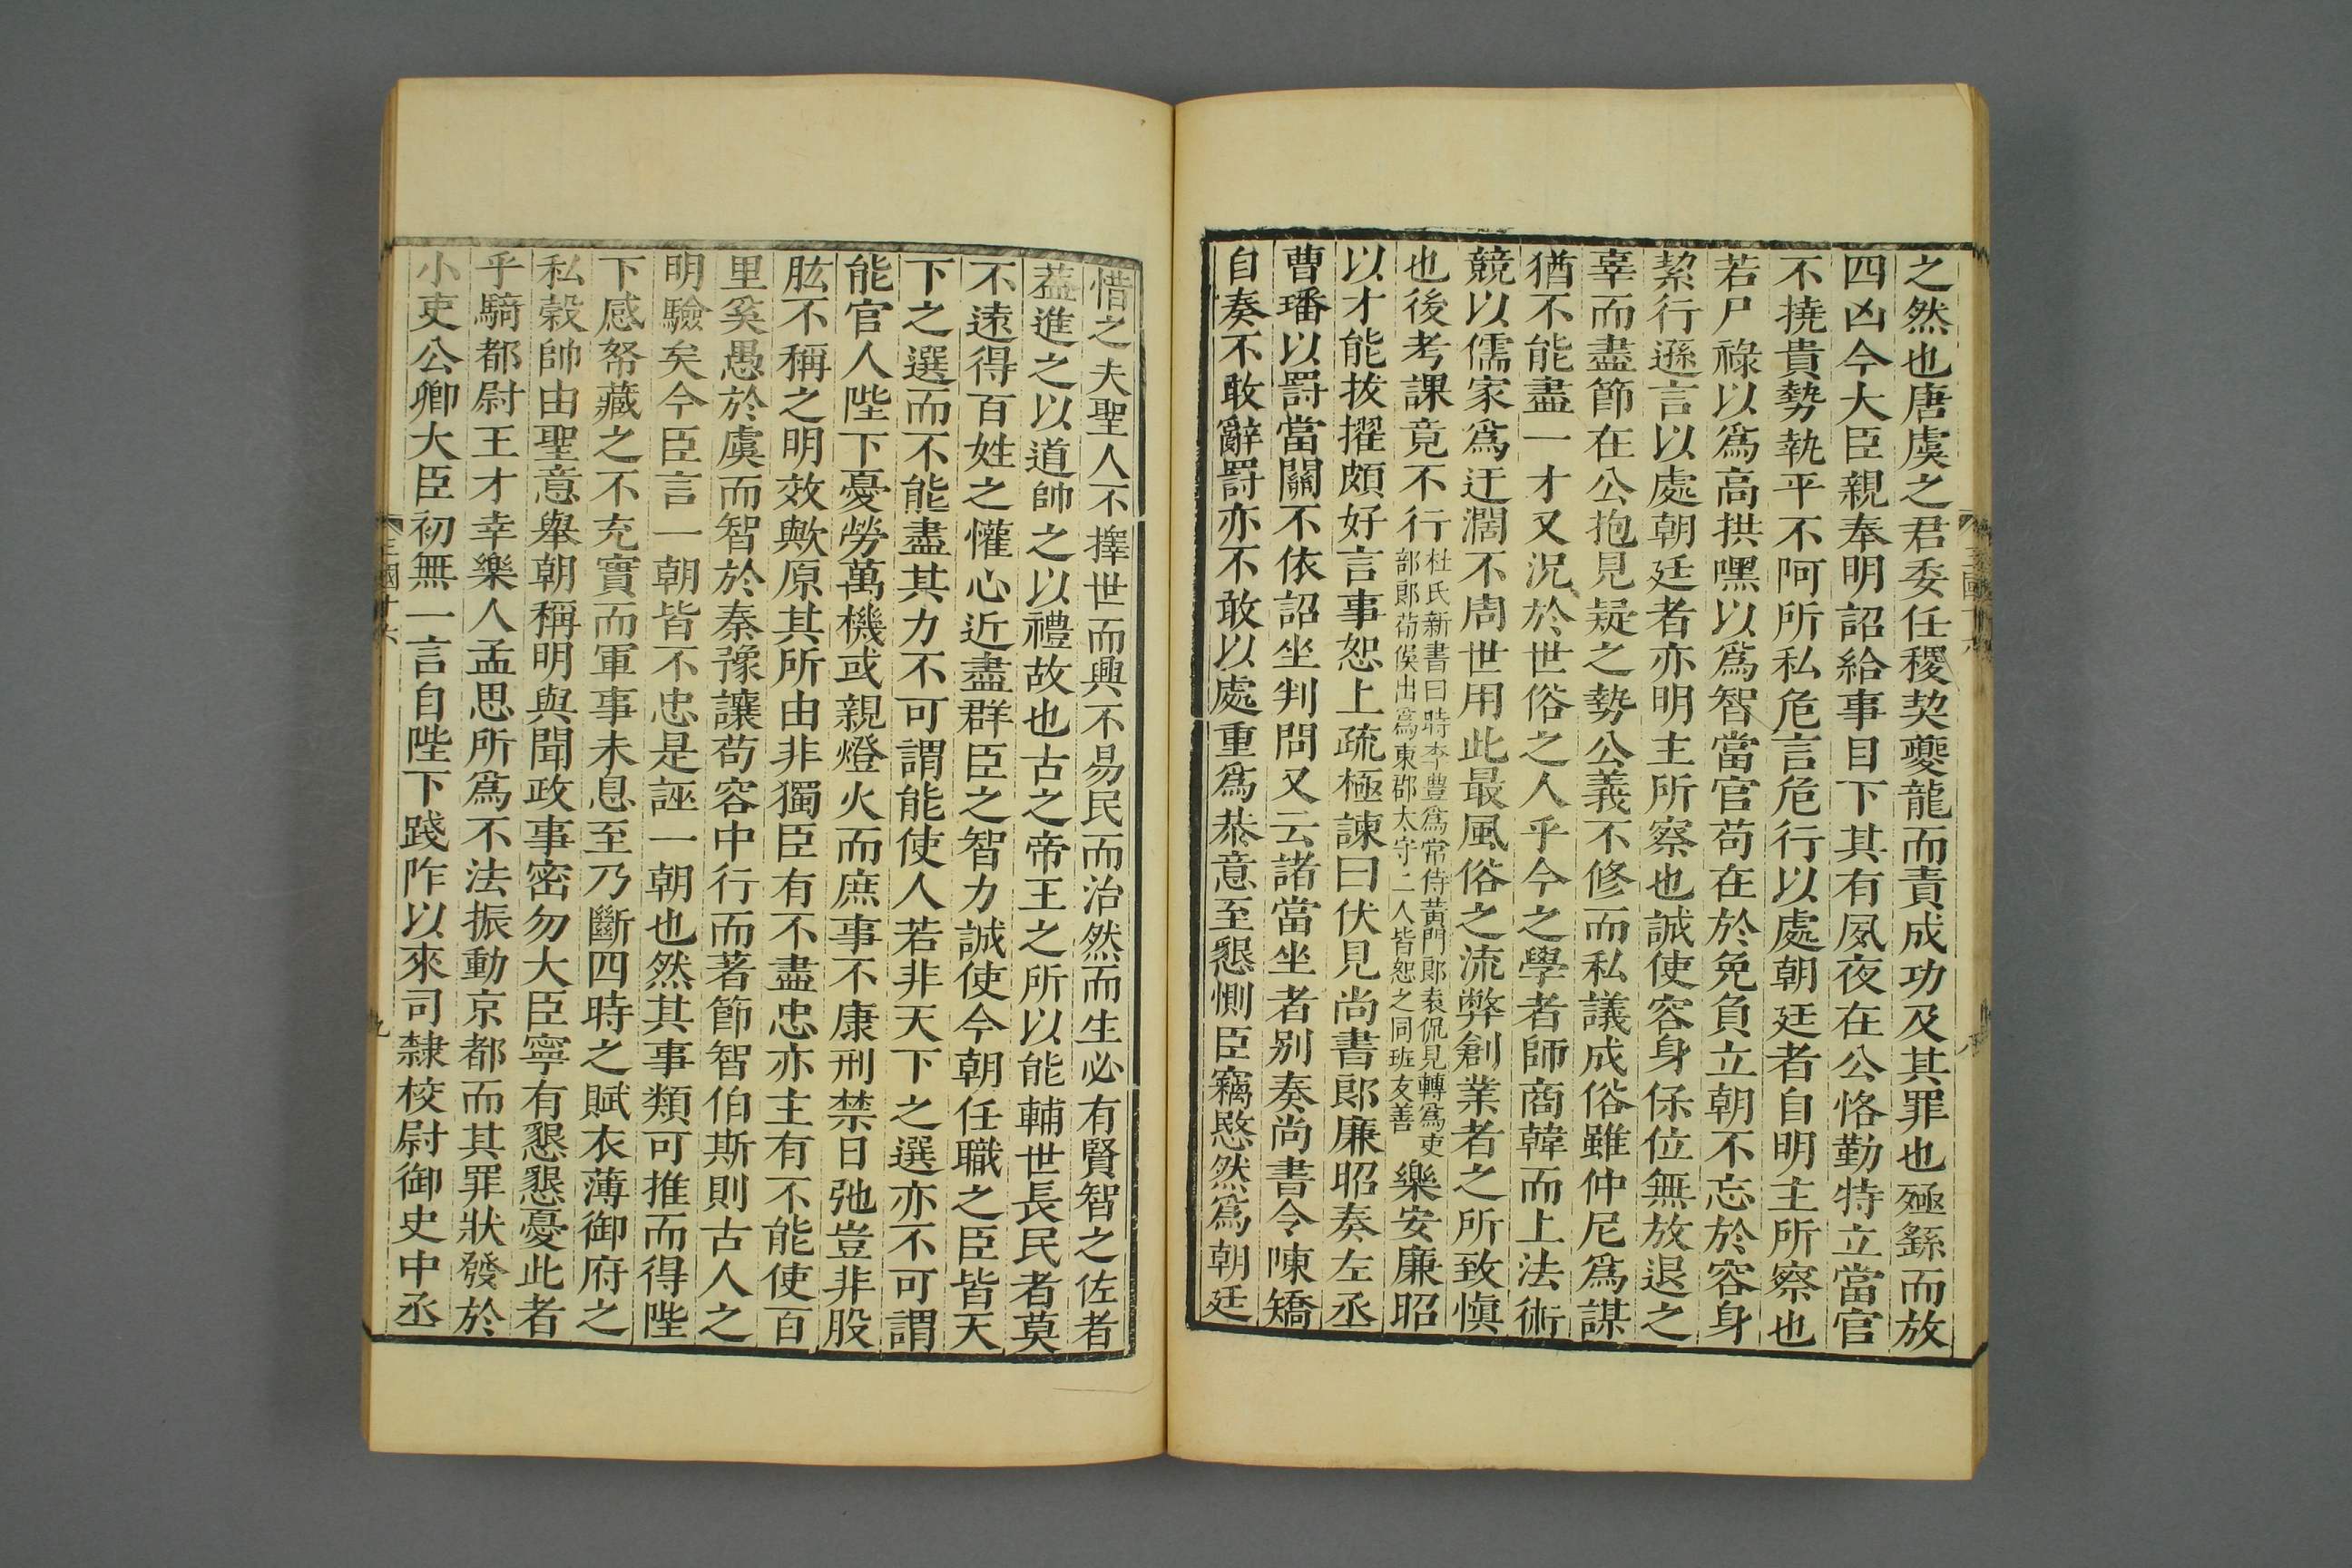 之然也唐虞之君委任稷契夔龍而責成功及其罪也殛鯀而放
四凶今大臣親奉明詔給事目下其有夙夜在公恪勤特立當官
不撓貴勢執平不阿所私危言危行以處朝廷者自明主所察也
若尸祿以爲高拱嘿以爲智當官苟在於免負立朝不忘於容身
絜行遜言以處朝廷者亦明主所察也誠使容身保位無放退之
辜而盡節在公抱見疑之勢公義不修而私議成俗雖仲尼爲謀
猶不能盡一才又況於世俗之人乎今之學者師商韓而上法術
競以儒家爲迂闊不周世用此最風俗之流弊創業者之所致愼
也後考課竟不行
杜氏新書曰時李豐爲常侍黃門郎袁侃見轉爲吏
部郎荀俁出爲東郡太守二人皆恕之同班友善
樂安廉昭
以才能拔擢頗好言事恕上疏極諫曰伏見尚書郎廉昭奏左丞
曹璠以罸當關不依詔坐判問又云諸當坐者别奏尚書令陳矯
自奏不敢辭罸亦不敢以處重爲恭意至懇惻臣竊愍然爲朝廷
惜之夫聖人不擇世而興不易民而治然而生必有賢智之佐者
葢進之以道帥之以禮故也古之帝王之所以能輔世長民者莫
不遠得百姓之懽心近盡群臣之智力誠使今朝任職之臣皆天
下之選而不能盡其力不可謂能使人若非天下之選亦不可謂
能官人陛下憂勞萬機或親燈火而庶事不康刑禁日弛豈非股
肱不稱之明效歟原其所由非獨臣有不盡忠亦主有不能使百
里奚愚於虞而智於秦豫讓苟容中行而著節智伯斯則古人之
明驗矣今臣言一朝皆不忠是誣一朝也然其事類可推而得陛
下感帑藏之不充實而軍事未息至乃斷四時之賦衣薄御府之
私榖帥由聖意舉朝稱明與聞政事密勿大臣寧有懇懇憂此者
乎騎都尉王才幸樂人孟思所爲不法振動京都而其罪狀發於
小吏公卿大臣初無一言自陛下踐阼以來司隸校尉御史中丞
三國十六
九